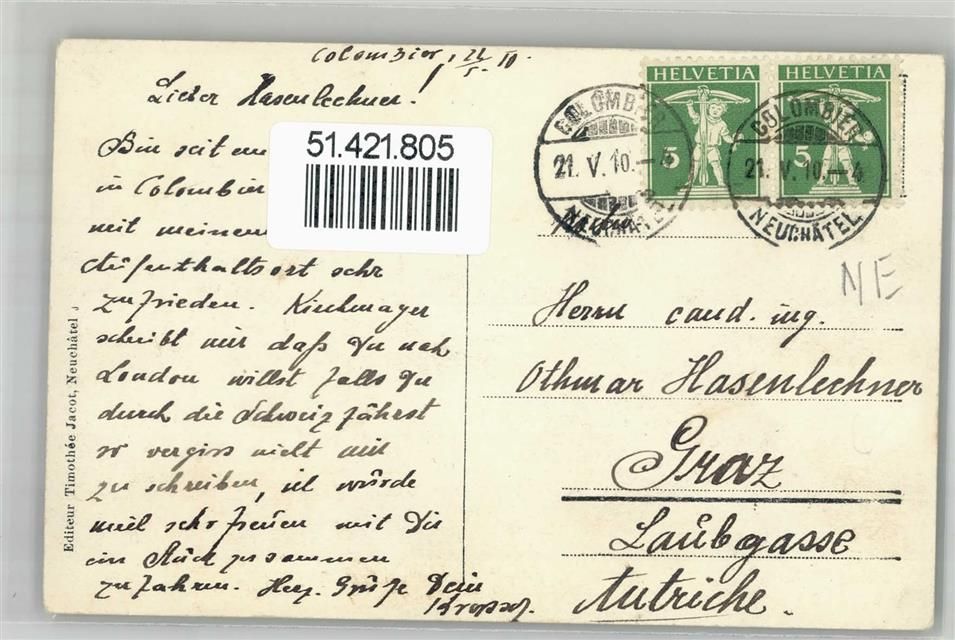 Colombier, 21/5. 10.
Lieber Hasenlechner!
Bin seit
in Colombier
mit meinem
Aufenthaltsort sehr
zufrieden. Kirchmayer
schreibt mir daß Du nach
London willst falls Du
durch die Schweiz fährst
so vergiss nicht mir
zu schreiben, ich würde
mich sehr freuen mit Dir
ein Stück zusammen
zu fahren. Herz. Grüße Dein
51.421.805
Editeur Timothée Jacot, Neuchâtel
HELVETIA
5
HELVETIA
5
COLOMBIER
21. V. 10. – 4
NEUCHÂTEL
COLOMBIER
21. V. 10. – 4
NEUCHÂTEL
NE
Herrn cand. ing.
Othmar Hasenlechner
Graz
Laubgasse
Autriche.